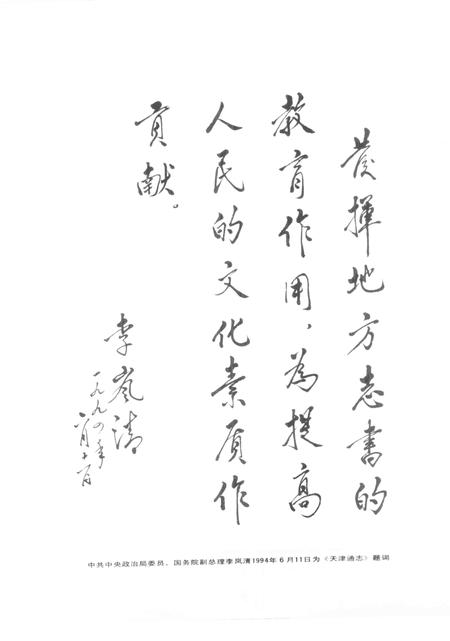 发揮地方志書的
教育作用，為提高
人民的文化素质作
贡献。
李嵐清
一九九四年
六月十一日
中共中央政治局委员、国务院副总理李岚清1994年6月11日为《天津通志》题词